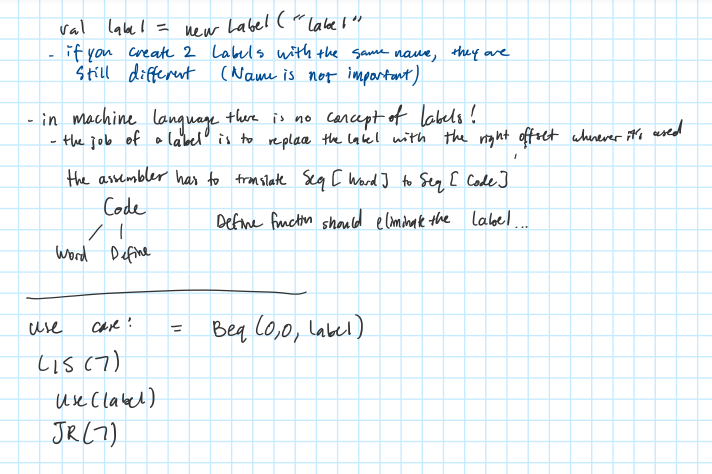 val label = new Label ( "Label"
- if you create 2 Labels with the same name, they are
still different (Name is not important)
- in machine language there is no concept of labels!
- the job of a label is to replace the label with the right offset wherever it's used
the assembler has to translate Seq [ Word ] to Seq [ Code ]
Code
Define function should eliminate the Label...
Word Define
use case: = Beq (0,0, label)
LIS (7)
Use (label)
JR (7)